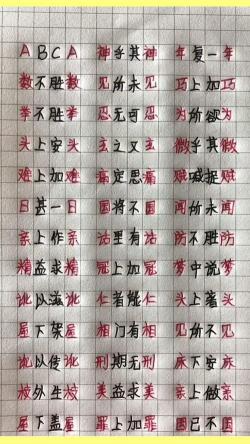 ABCA 神乎其神 年复一年
数不胜数 见所未见 巧上加巧
举不胜举 忍无可忍 为所欲为
头上安头 玄之又玄 微乎其微
难上加难 痛定思痛 贼喊捉贼
日甚一日 国将不国 闻所未闻
亲上作亲 话里有话 防不胜防
精益求精 冠上加冠 梦中说梦
讹以滋讹 仁者能仁 头上著头
屋下架屋 相门有相 见所不见
讹以传讹 刑期无刑 床下安床
枝外生枝 美益求美 亲上做亲
屋下盖屋 罪上加罪 因已不因